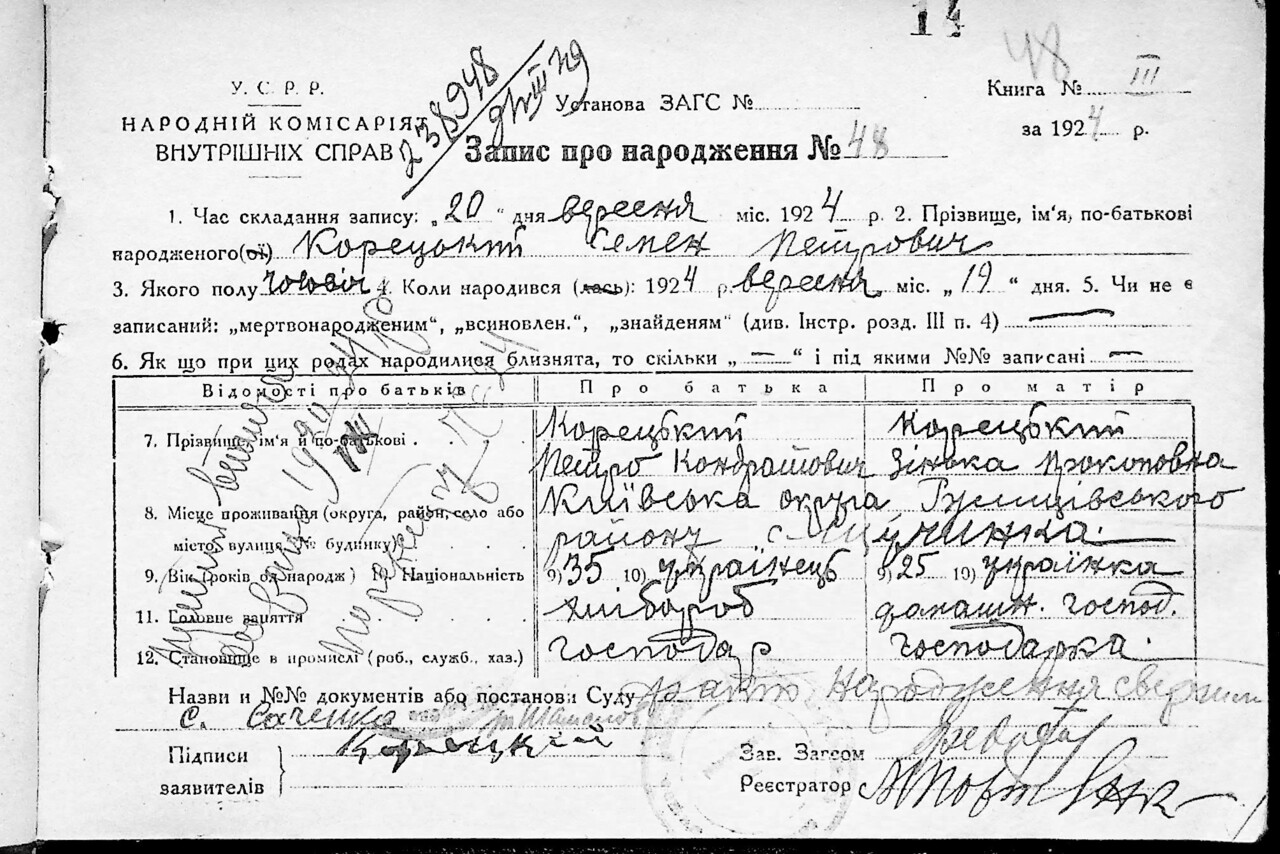 14
48
У. С. Р. Р.
НАРОДНІЙ КОМІСАРІЯТ
ВНУТРІШНІХ СПРАВ
238948
Установа ЗАГС №
Книга № III
за 1924 р.
Запис про народження № 48
1. Час складання запису: „20“ дня вересня міс. 1924 р. 2. Прізвище, ім'я, по-батькові
народженого(ої) Корецький Семен Петрович
3. Якого полу чоловіч 4. Коли народився (лась): 1924 р. вересня міс. „19“ дня. 5. Чи не є
записаний: „мертвонародженим“, „всиновлен.“, „знайденям“ (див. Інстр. розд. III п. 4) —
6. Як що при цих родах народилися близнята, то скільки „—“ і під якими №№ записані —
Відомості про батьків Про батька Про матір
7. Прізвище, ім'я й по-батькові Корецький Корецький
Петро Кондратович Зінька Прокоповна
8. Місце проживання (округа, район, село або Київська округа
місто, вулиця, № будинку) району с.
9. Вік (років од народж) 10. Національність 9) 35 10) українець 9) 25 10) українка
11. Головне заняття хлібороб домашн. господ.
12. Становище в промислі (роб., служб., хаз.) господар господарка
Назви и №№ документів або постанови Суду факт народження
с.
Підписи
заявителів
Корецкій
Зав. Загсом
Реєстратор